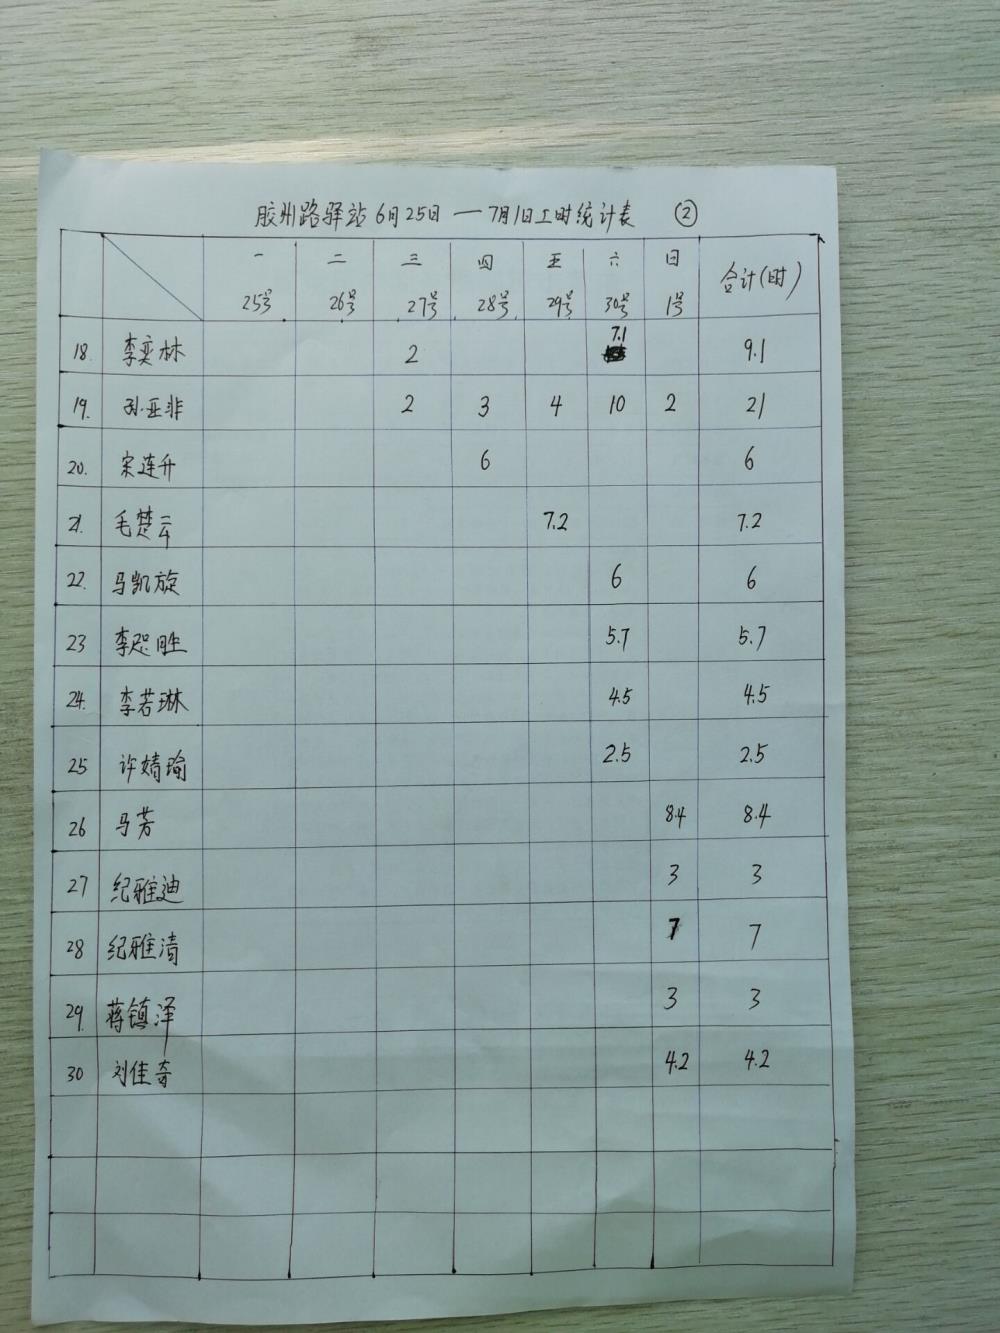 胶州路驿站6月25日—7月1日工时统计表 ②
一 二 三 四 五 六 日 合计(时)
25号 26号 27号 28号 29号 30号 1号
18. 李奕林 2 7.1 9.1
19. 孙亚非 2 3 4 10 2 21
20. 宋连升 6 6
21. 毛楚云 7.2 7.2
22. 马凯旋 6 6
23 李 胜 5.7 5.7
24. 李若琳 4.5 4.5
25 许婧瑜 2.5 2.5
26 马芳 8.4 8.4
27 纪雅迪 3 3
28 纪雅清 7 7
29. 蒋镇泽 3 3
30 刘佳奇 4.2 4.2